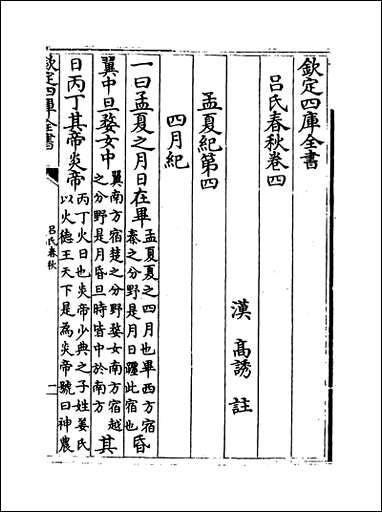 欽定四庫全書
吕氏春秋卷四
漢 高誘 註
孟夏紀第四
四月紀
一曰孟夏之月日在畢孟夏夏之四月也畢西方宿秦之分野是月日躔此宿也昏
翼中旦婺女中翼南方宿楚之分野婺女南方宿越之分野是月昏旦時皆中於南方其
日丙丁其帝炎帝丙丁火日也炎帝少典之子姓姜氏以火德王天下是為炎帝號曰神農
欽定四庫全書
吕氏春秋